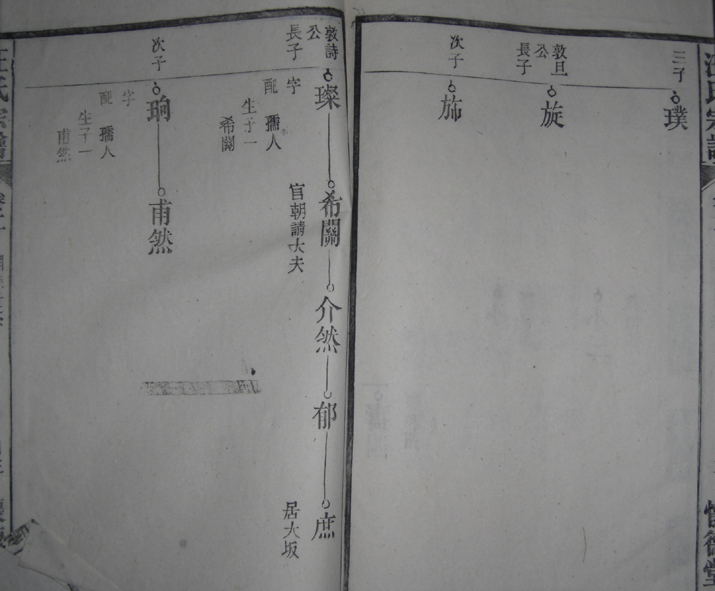 汪氏宗譜
三子
璞
敦旦公長子
旋
次子
斾
敦詩公長子
璨
字
配 孺人
生子一
希關
希關
官朝請大夫
介然
郁
庶
居大坂
次子
珦
字
配 孺人
生子一
甫然
甫然
汪氏宗譜